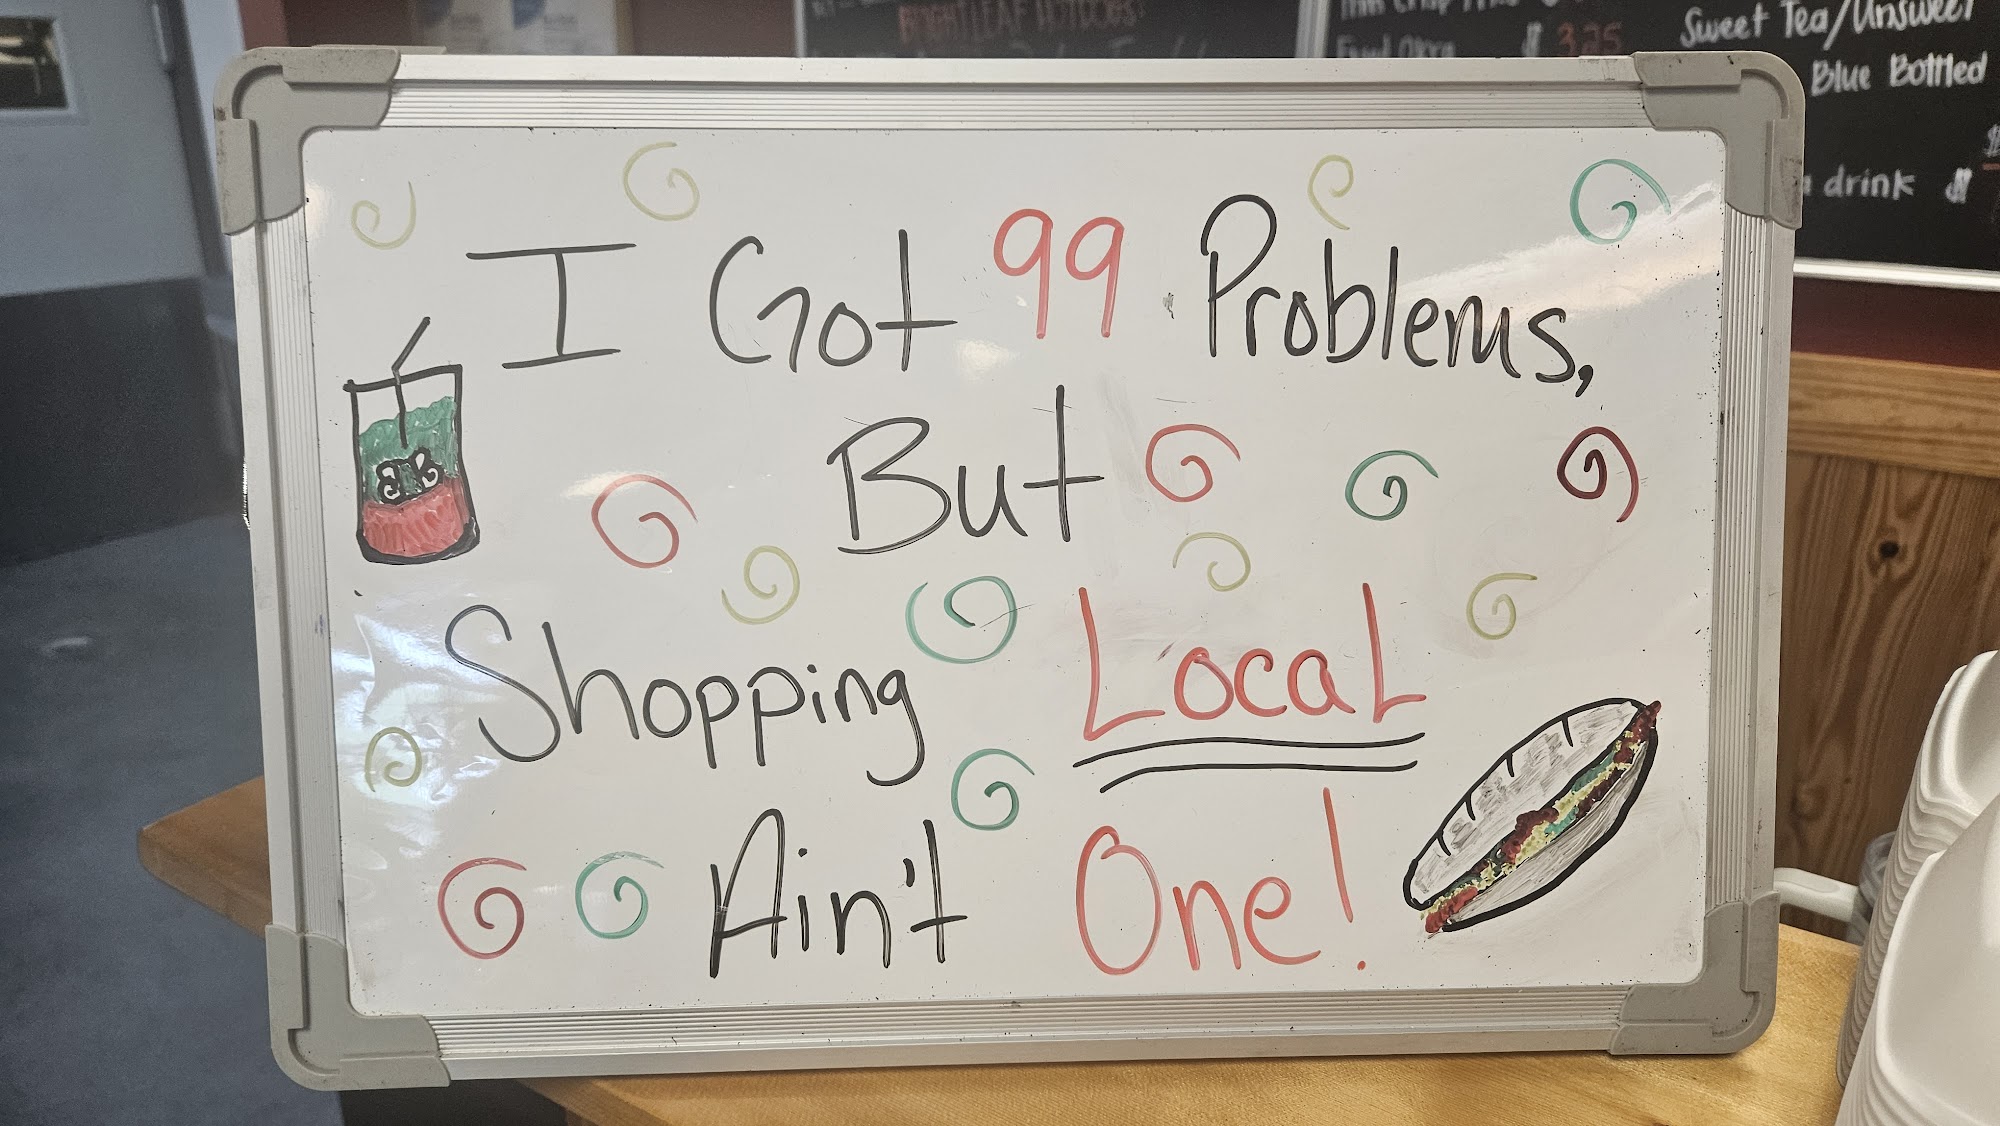 BRIGHTLEAF HOTDOGS!
$ 3.25
Sweet Tea/Unsweet
Blue Bottled
drink $
I Got 99 Problems,
But
Shopping Local
Ain't One!